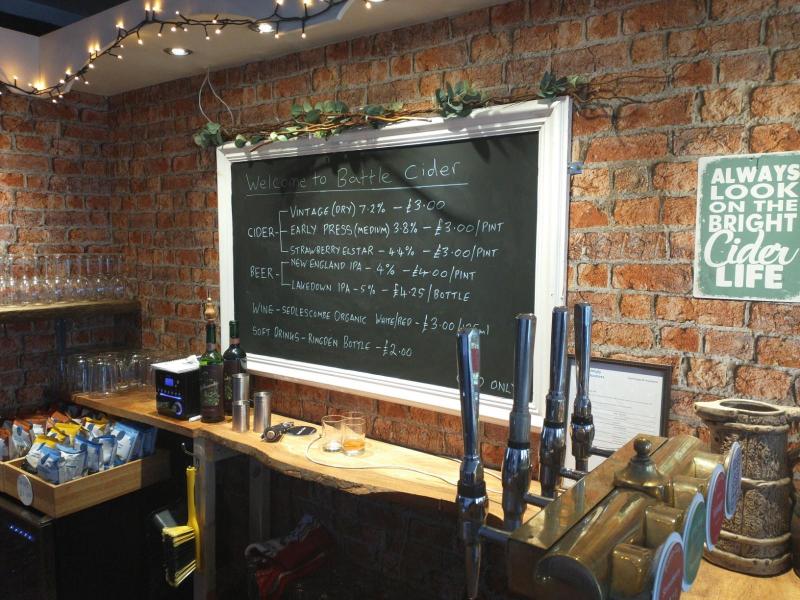 Welcome to Battle Cider
CIDER - VINTAGE (DRY) 7.2% - £3.00
EARLY PRESS (MEDIUM) 3.8% - £3.00/PINT
STRAWBERRY ELSTAR - 4.4% - £3.00/PINT
BEER - NEW ENGLAND IPA - 4% - £4.00/PINT
LAKEDOWN IPA - 5% - £4.25/BOTTLE
WINE - SEDLESCOMBE ORGANIC WHITE/RED - £3.00/125ml
SOFT DRINKS - RINGDEN BOTTLE - £2.00
ONLY
ALWAYS
LOOK
ON THE
BRIGHT
Cider
LIFE